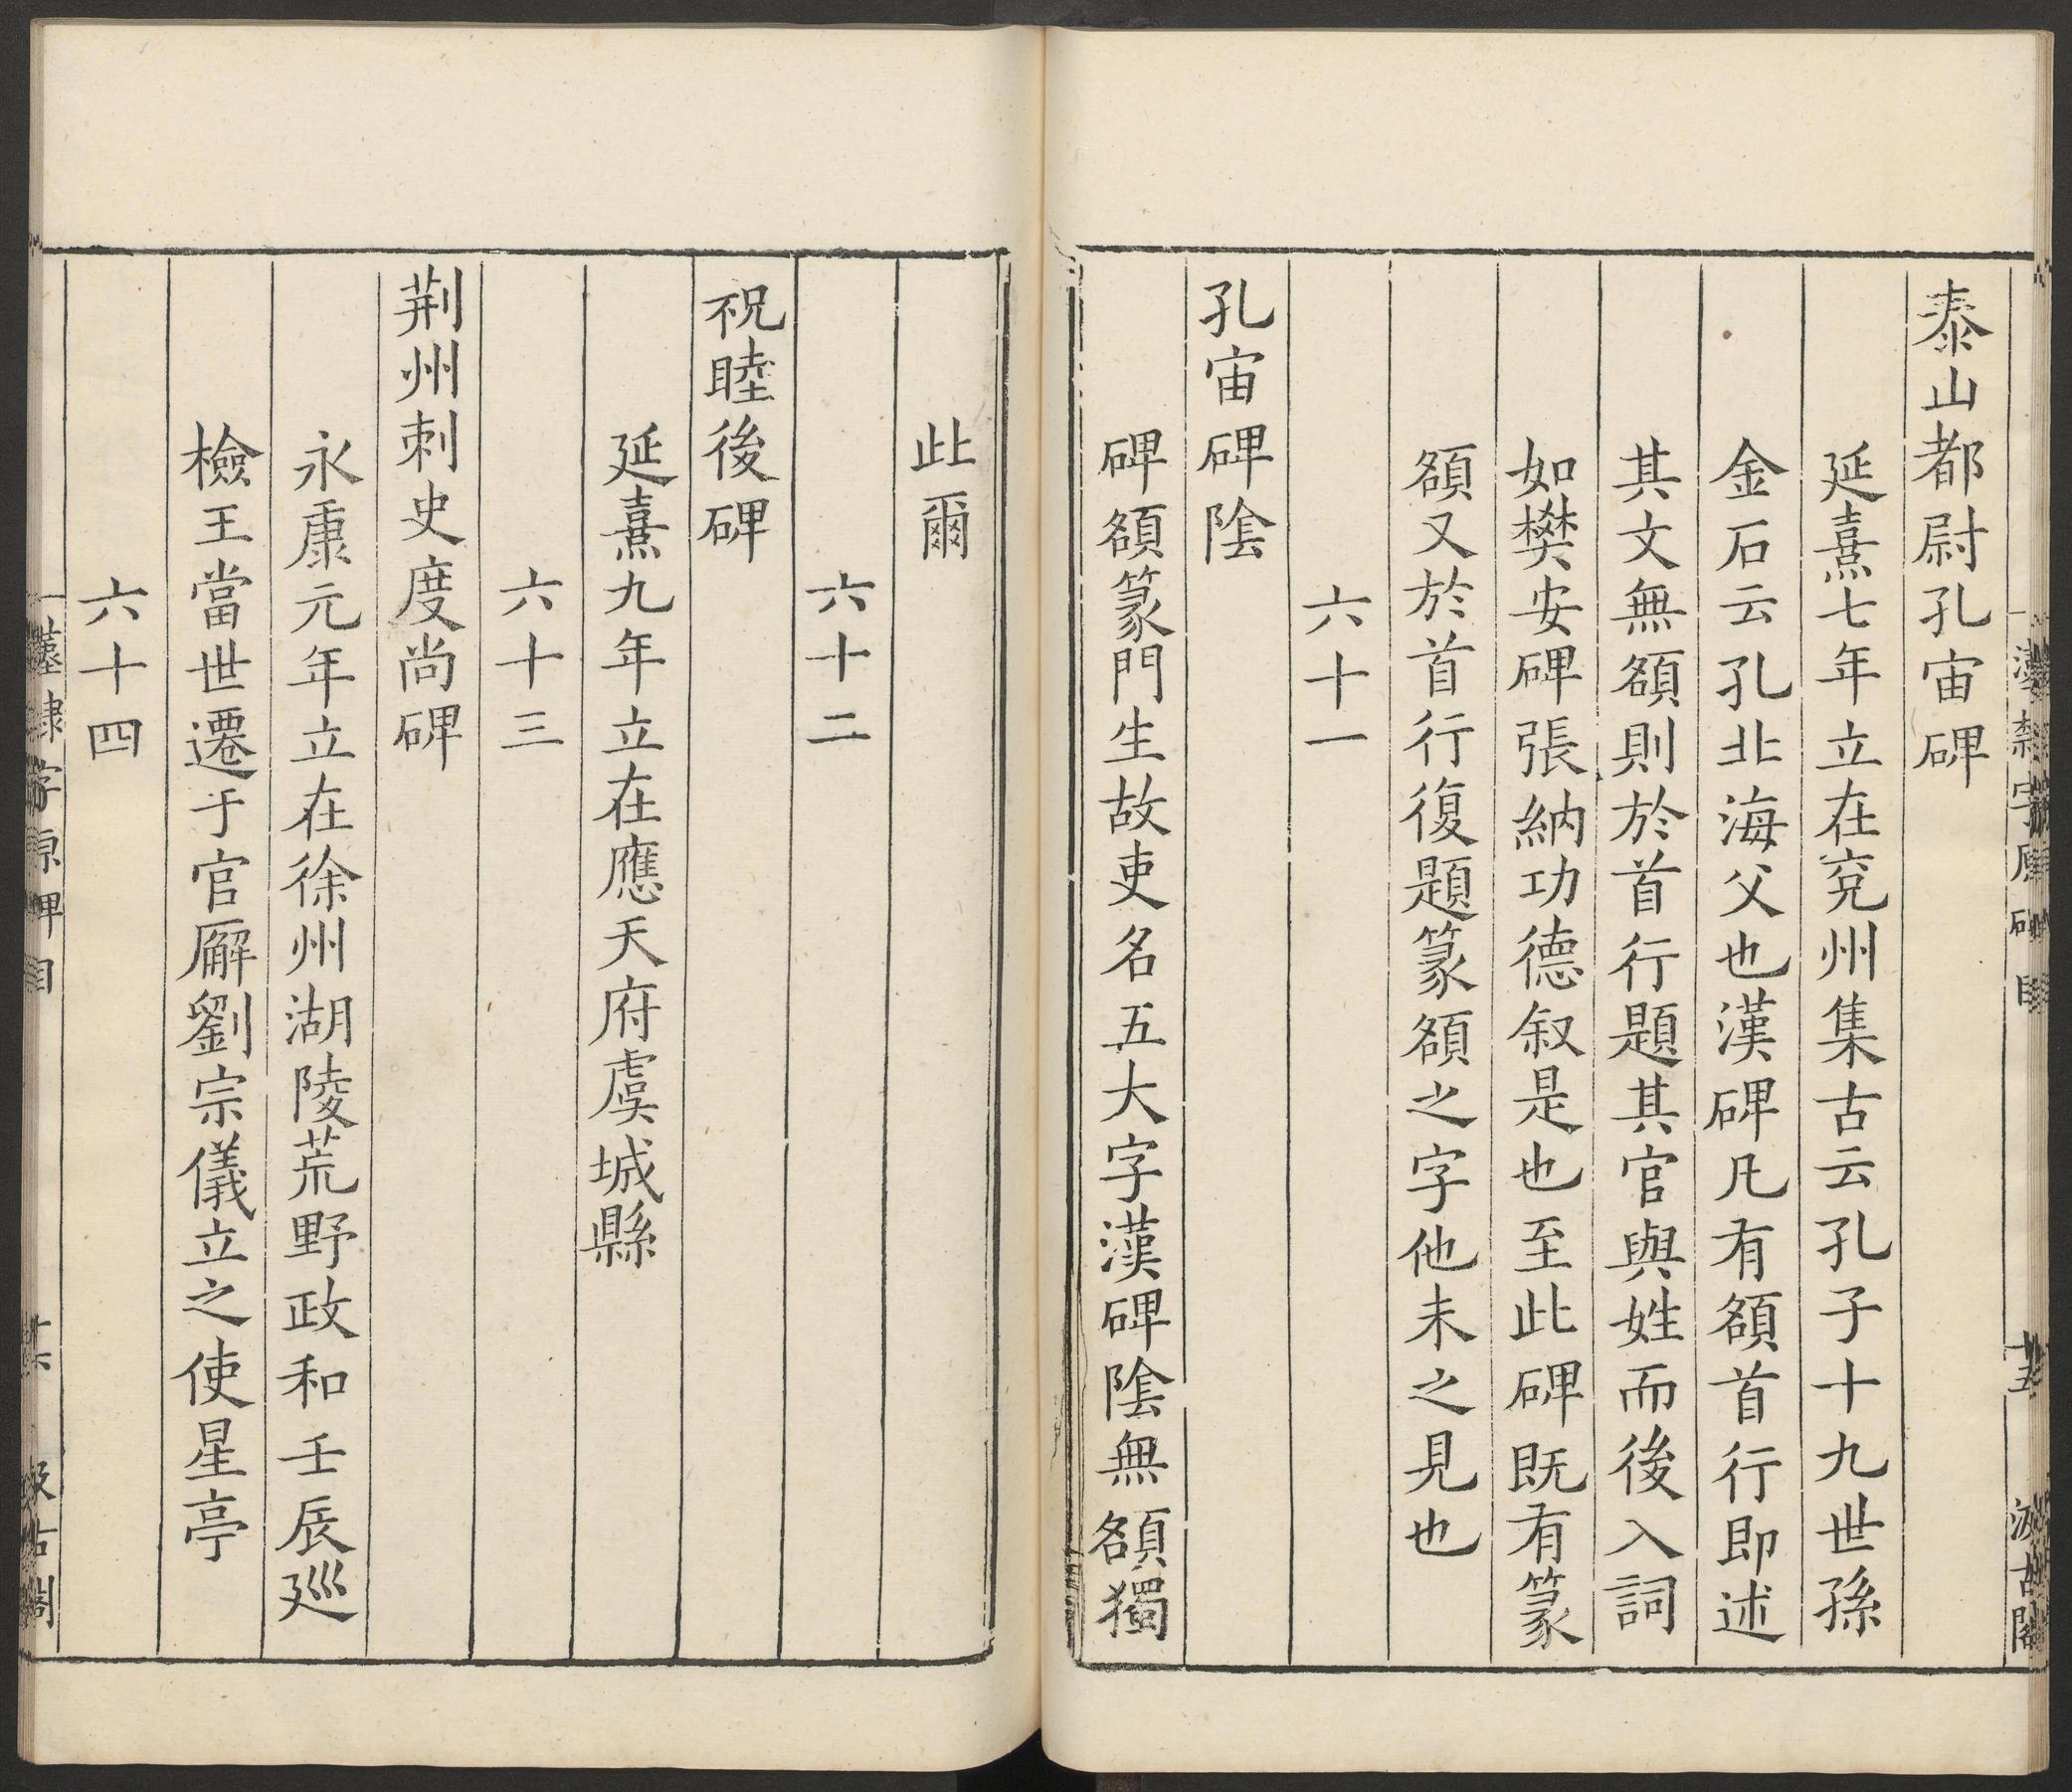 泰山都尉孔宙碑
延熹七年立在兖州集古云孔子十九世孫
金石云孔北海父也漢碑凡有額首行即述
其文無額則於首行題其官與姓而後入詞
如樊安碑張納功德叙是也至此碑既有篆
額又於首行復題篆額之字他未之見也
六十一
孔宙碑陰
碑額篆門生故吏名五大字漢碑陰無額獨
此爾
六十二
祝睦後碑
延熹九年立在應天府虞城縣
六十三
荆州刺史度尚碑
永康元年立在徐州湖陵荒野政和壬辰廵
檢王當世遷于官廨劉宗儀立之使星亭
六十四